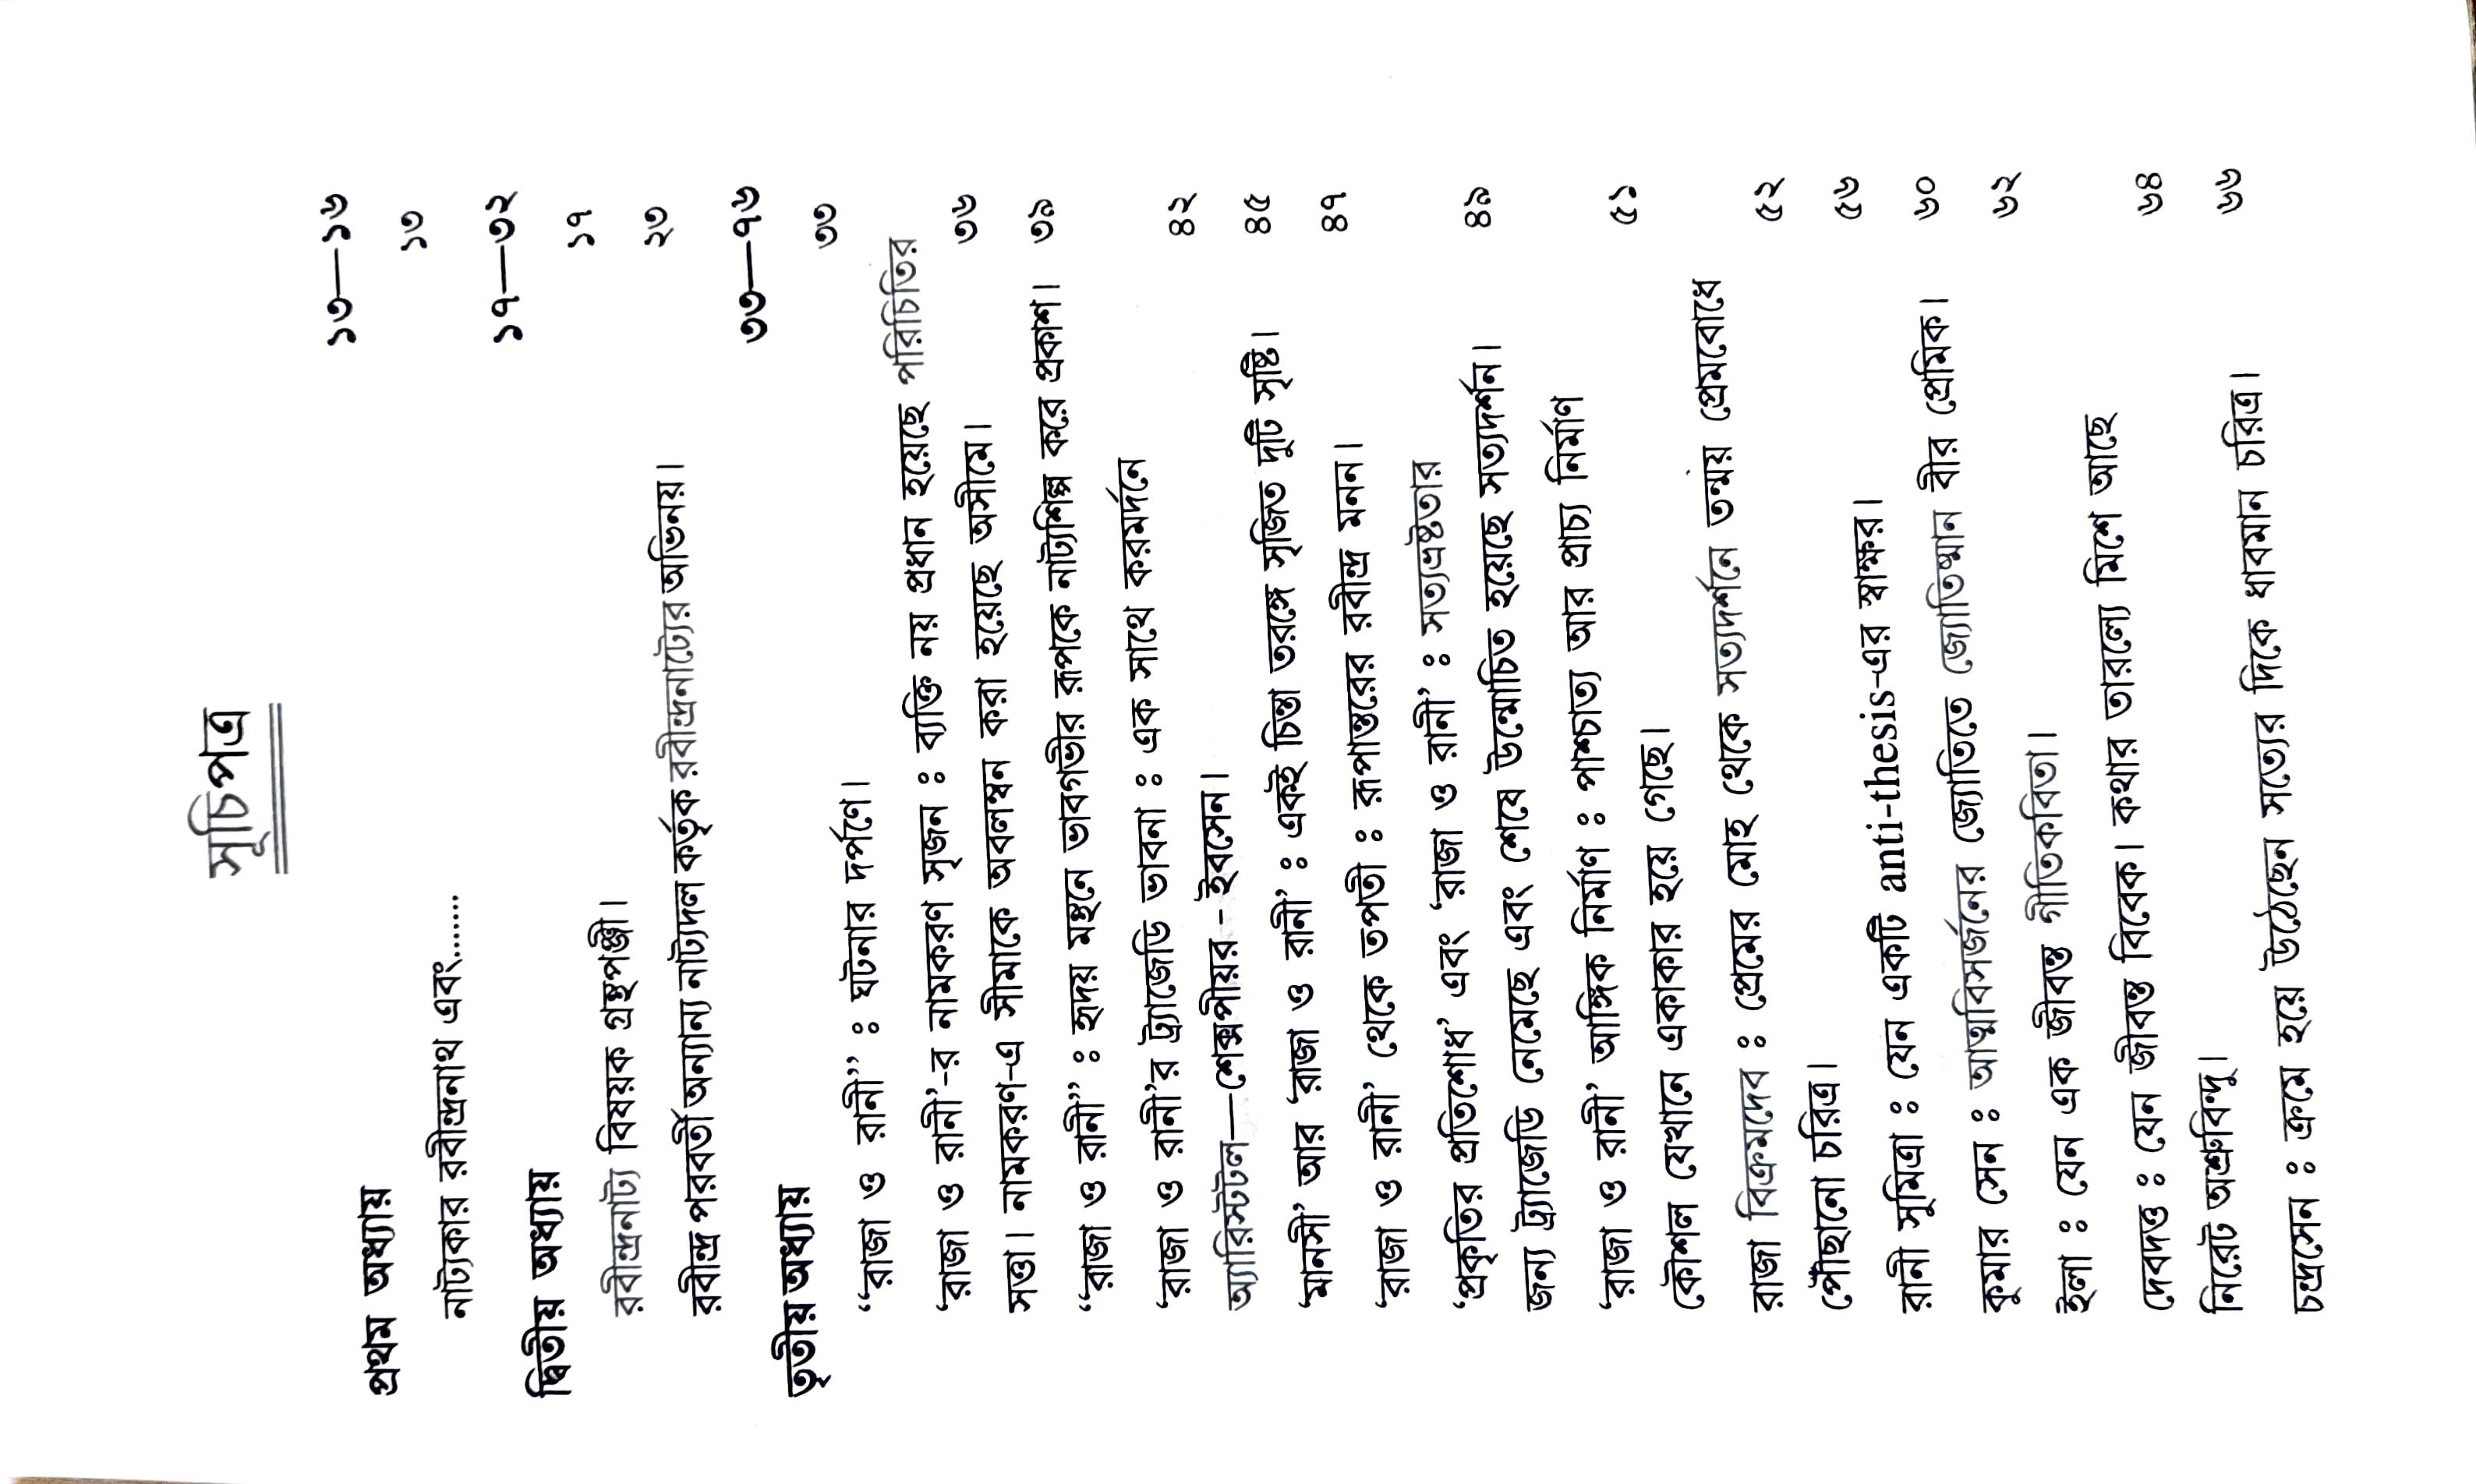 সূচিপত্র
প্রথম অধ্যায় ১৩—১৬
নাট্যকার রবীন্দ্রনাথ এবং....... ১৩
দ্বিতীয় অধ্যায় ১৭—৩২
রবীন্দ্রনাট্য বিষয়ক গ্রন্থপঞ্জী। ১৭
রবীন্দ্র পরবর্তী অন্যান্য নাট্যদল কর্তৃক রবীন্দ্রনাট্যের অভিনয়। ২৩
তৃতীয় অধ্যায় ৩৩—৭৬
“রাজা ও রানী” ঃ ঘটনার দর্পণে। ৩৩
‘রাজা ও রানী’-র নামকরণ সৃজন ঃ ব্যক্তি নয় প্রধান হয়েছে পরিচিতির
সত্তা। নামকরণ-এ সীমাকে অবলম্বন করা হয়েছে অসীমে। ৩৬
“রাজা ও রানী” ঃ হৃদয় মন্থনে ভাবগভীর রূপকে নাট্যশিল্প করে প্রকাশ। ৩৯
‘রাজা ও রানী’র ট্র্যাজেডি ভাবনা ঃ এক সাথে করমর্দনে
অ্যারিস্টটল—শেক্সপীয়র - ইবসেন। ৪২
‘মানসী’ আর ‘রাজা ও রানী’ ঃ একই চিন্তা তরঙ্গে সৃজিত দুটি সৃষ্টি। ৪৫
‘রাজা ও রানী’ থেকে তপতী ঃ রূপান্তরের রবীন্দ্র মনন। ৪৭
‘প্রকৃতির প্রতিশোধ’ এবং ‘রাজা ও রানী’ ঃ সত্যভ্রষ্টতার
জন্য ট্র্যাজেডি নেমেছে এবং শেষে উন্মোচিত হয়েছে সত্যদর্শন। ৪৯
‘রাজা ও রানী’ আঙ্গিক নির্মাণ ঃ পাশ্চাত্য আর প্রাচ্য নির্মাণ
কৌশল যেখানে একাকার হয়ে গেছে। ৫১
রাজা বিক্রমদেব ঃ প্রেমের মোহ থেকে সত্যদর্শনে তন্ময় প্রেমবোধে
পৌঁছানো চরিত্র। ৫২
রানী সুমিত্রা ঃ যেন একটি anti-thesis-এর স্বাক্ষর। ৫৬
কুমার সেন ঃ আত্মবিসর্জনের জ্যোতিতে জ্যোতিষ্মান বীর প্রেমিক। ৬০
ইলা ঃ যেন এক জীবন্ত গীতিকবিতা। ৬২
দেবদত্ত ঃ যেন জীবন্ত বিবেক। কথার তারল্যে মিশে আছে
নিরেট অশ্রুবিন্দু। ৬৪
চন্দ্রসেন ঃ ক্রমে হয়ে উঠেছেন সত্যের দিকে ধাবমান চরিত্র। ৬৬